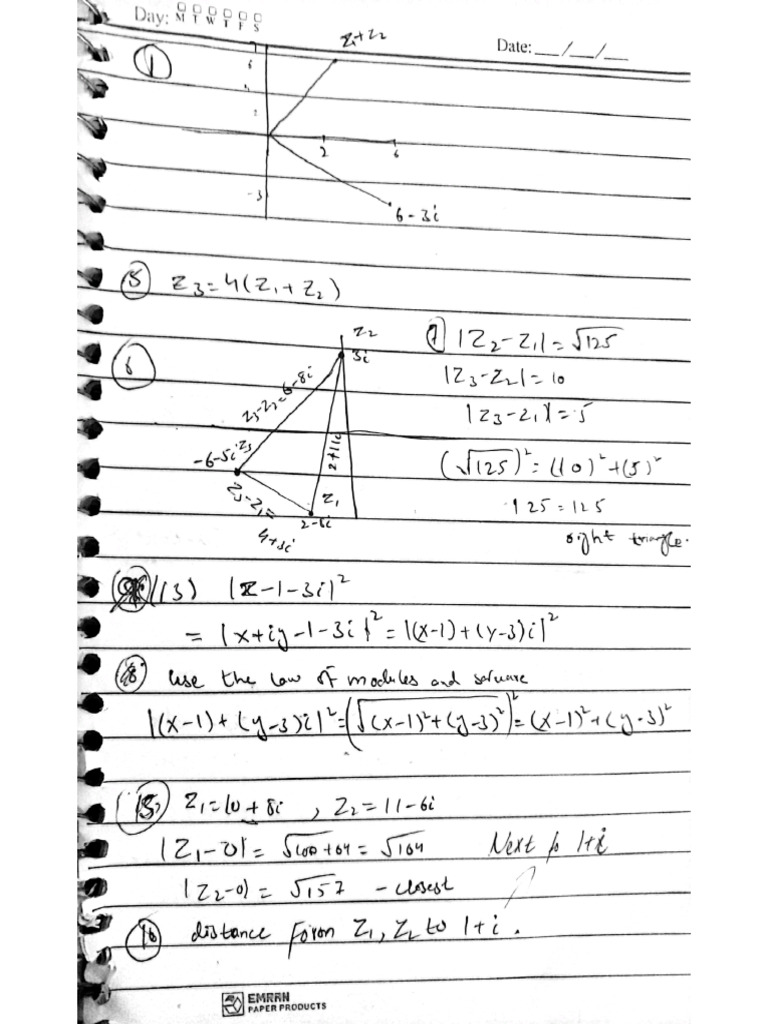 Day: M T W T F S
Date: __/__/__
①
z₁+z₂
6
2
2
6
-3
6-3i
⑤ z₃=4(z₁+z₂)
⑥
z₂
3i
z₃-z₂=6-8i
-6-5i z₃
2+11i
z₁
z₃-z₁=
4+3i
2-8i
⑦ |z₂-z₁|=√125
|z₃-z₂|=10
|z₃-z₁|=5
(√125)²=(10)²+(5)²
125=125
right triangle.
(13) |z-1-3i|²
= |x+iy-1-3i|²=|(x-1)+(y-3)i|²
use the law of modules and square
|(x-1)+(y-3)i|²=(√(x-1)²+(y-3)²)²=(x-1)²+(y-3)²
(15) z₁=10+8i , z₂=11-6i
|z₁-0|= √100+64=√164
Next to 1+i
|z₂-0|= √157 -closest
(16) distance from z₁,z₂ to 1+i.
EMRAN
PAPER PRODUCTS